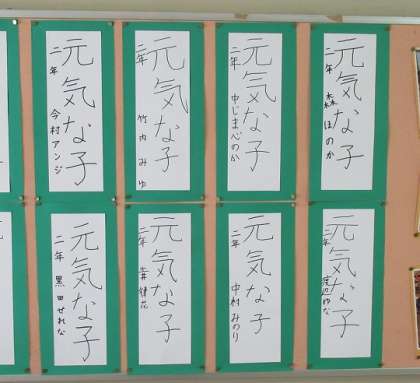 元気な子
二年
森 ほのか
元気な子
二年
中じまべのか
元気な子
二年
竹内 みゆ
元気な子
二年
今村アンジ
元気な子
二年
渡辺ゆな
元気な子
二年
中村みのり
元気な子
二年
元気な子
二年
黒田せれな